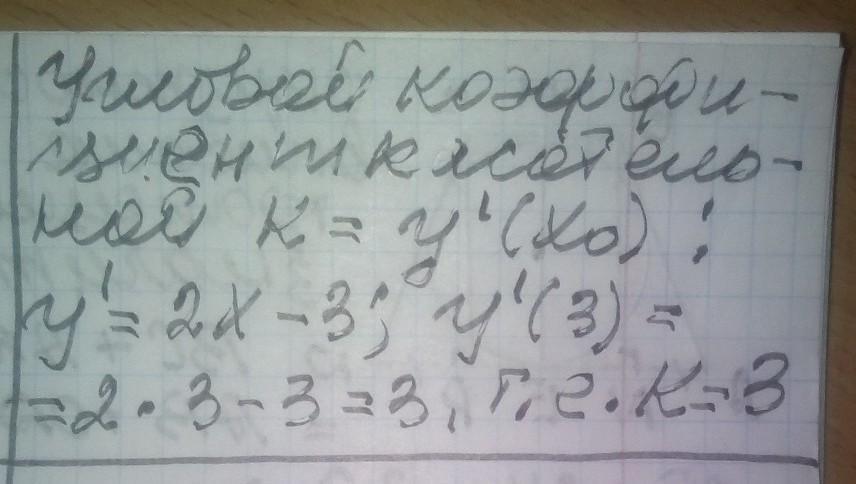 Угловой коэффи-
циент касатель-
ной K = y'(x₀):
y' = 2x - 3; y'(3) =
= 2 · 3 - 3 = 3, т.е. K = 3